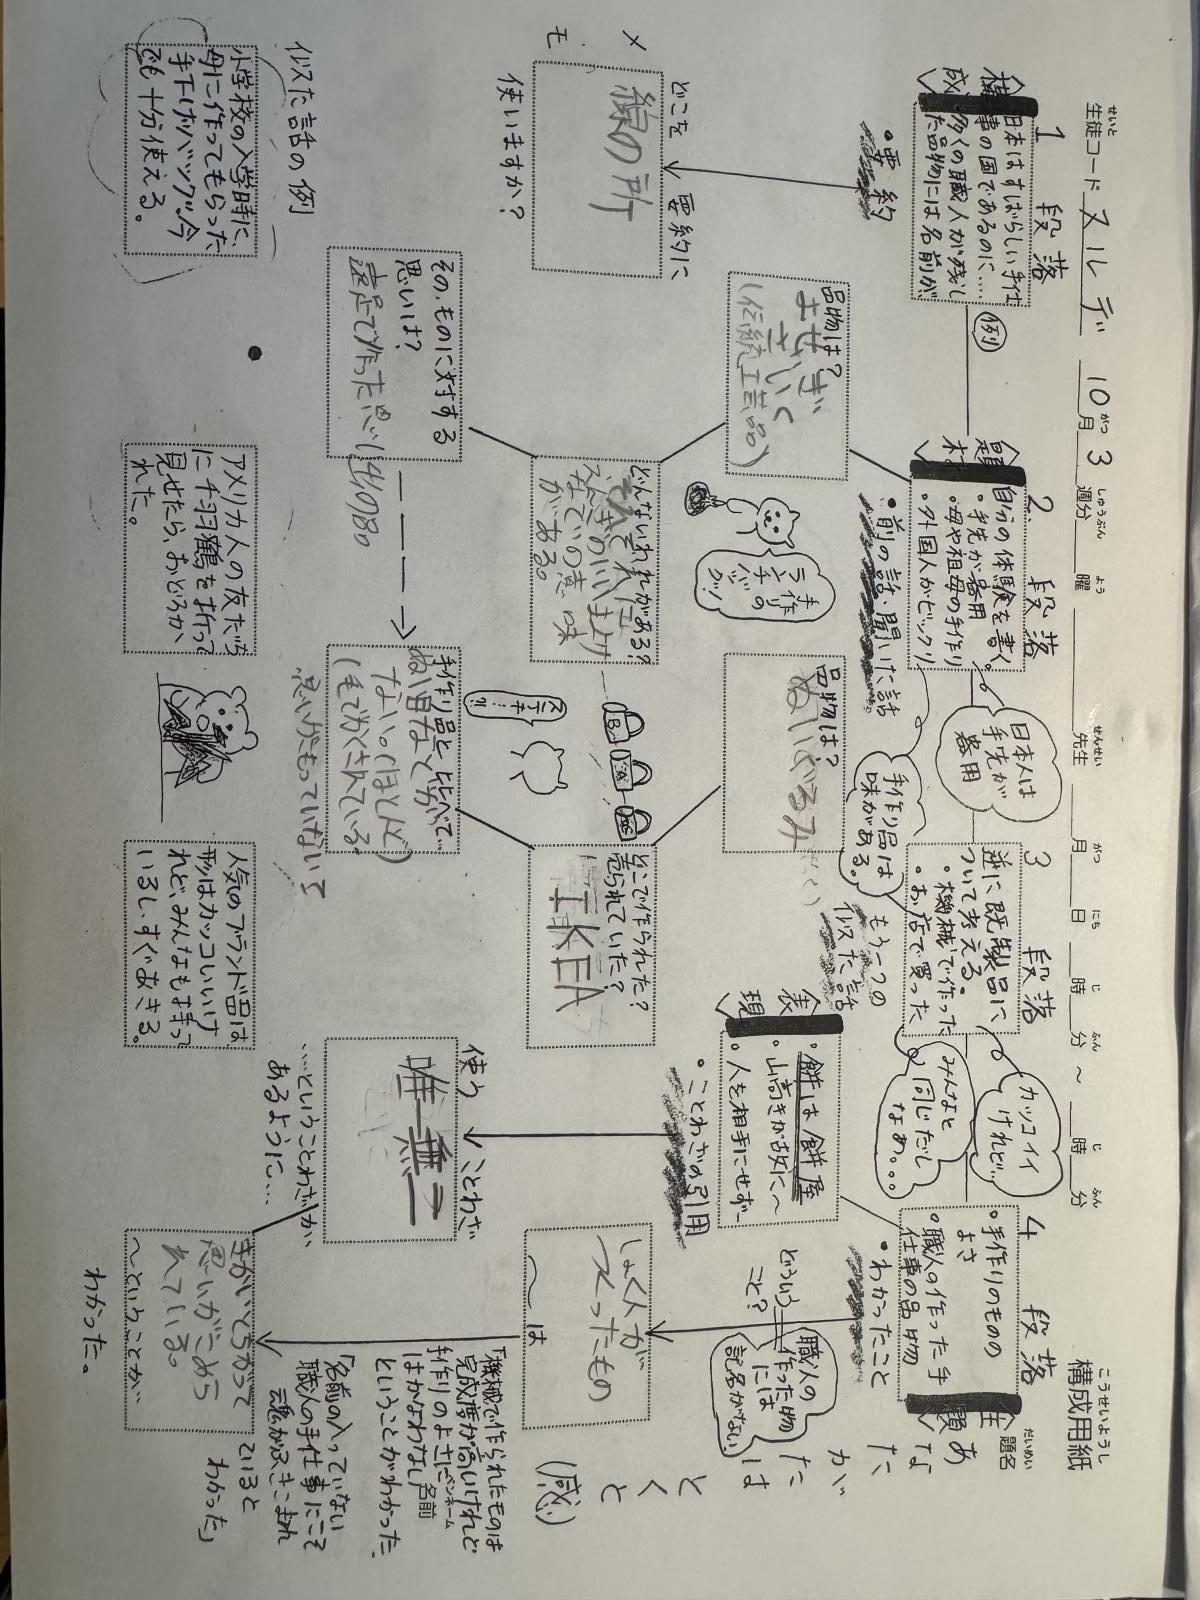 構成用紙
こうせいようし
生徒コード スルデ 10月3週分 曜 先生 月 日 時 分 ~ 時 分
せいと がつ しゅうぶん よう せんせい がつ にち じ ふん じ ふん
題名
だいめい
あ
な
た
が
た
は
とくと
(感)
1 段落
構成
日本はすばらしい手仕
事の国であるのに…
多くの職人が残し
た品物には名前が
例
・要約
どこを
要約に
使いますか?
線の所
メモ
2 段落
題材
自分の体験を書く。
・手先が器用
・母や祖母の手作り
・外国人がビックリ
・前の話・聞いた話
日本人は
手先が
器用
手作り品は
味がある。
品物は?
よせぎ
ざいく
(伝統工芸品)
手作
ランチの
バッグ!
どんないわれがある?
がある。
その、ものに対する
思いは?
遠足で作った思い出の品
3 段落
逆に既製品に
ついて考える。
・機械で作った
・お店で買った
カッコイイ
けれど…
みんなと
同じだし
なぁ。。。
もう一つの
似た話
品物は?
ぬいぐるみ
どこで作られた?
売られていた?
IKEA
ステキ
…?!
手作り品と比べて…
ぬい目などが
ない。(ほとんど)
(毛でかくされている)
思いがもっていない
4 段落
主題
・手作りのものの
よさ
・職人の作った手
仕事の品物
・わかったこと
表現
・餅は餅屋
・山高きが故に~
・人を相手にせず…
・ことわざの引用
ことわざ
使う
唯一無二
…ということわざが
あるように…
どういう
こと?
職人の
作った物
には
記名がない
しょく人が
つくったもの
~は
きかいとちがって
思いがこめら
れている。
~ということが
わかった。
「機械で作られたものは
完成度が高いけれど
手作りのよさに
はかなわない」
ということがわかった
名前
ペンネーム
「名前の入っていない
職人の手仕事にこそ
魂がふきこまれ
ていると
わかった」
似た話の例
小学校の入学時に、
母に作ってもらった
手下げバッグが今
でも十分使える。
アメリカ人の友だち
に千羽鶴を折って
見せたら、おどろか
れた。
人気のブランド品は
形はカッコいいけ
れど、みんなもまって
いるし、すぐあきる。